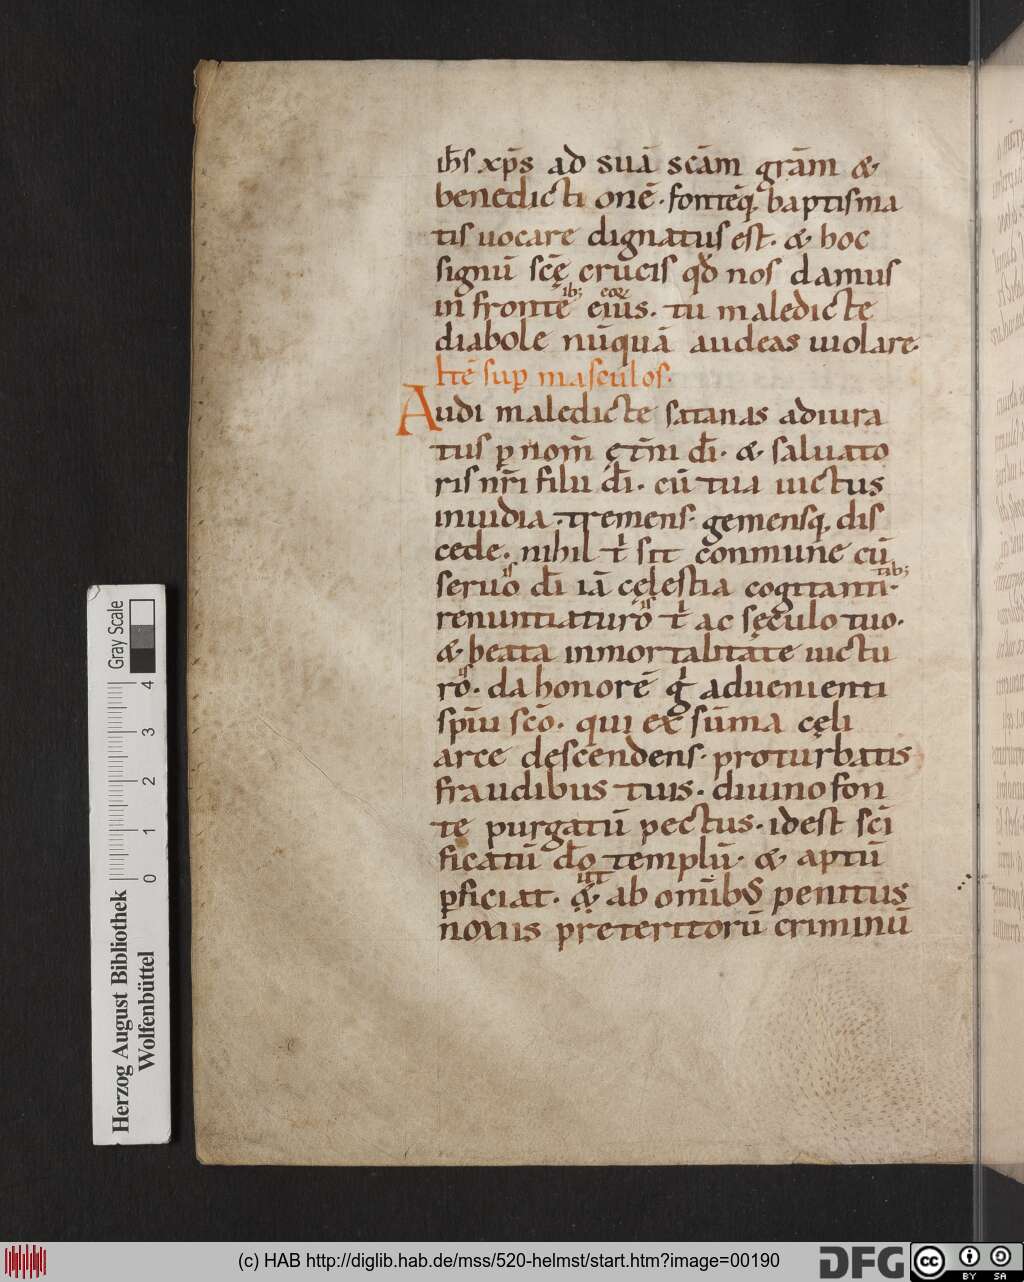 ih̄s xp̄s ad suā scām grām &·
benedicti onē · fonteq; baptisma
tis uocare dignatus est · & hoc
signū scę̄ crucis qd̄ nos damus
in frontē ib; eius eorum · tu maledicte
diabole nūquā audeas uiolare·
Itē sup̄ masculos·
Audi maledicte satanas adiura
tus p̄ nom̄ ęt̄ni dī · & · saluato
ris nr̄i filii dī · cū tua uictus
inuidia · tremens · gemensq; dis
cede · nihil t̄ sit conmune cū
seruo is dī iā cęlestia cogitanti tib; ·
renuntiaturo is t̄ ac sęculo tuo·
& · beata inmortalitate uictu
ro is · da honorē ḡ aduenienti
spūi scō · qui ex sūma cęli
arce descendens · proturbatis
fraudibus tuis · diuino fon
te purgatū pectus · id est scī
ficatū dō templū · & aptū
p̄ficiat · & ut ab omīb; penitus
noxiis preteritorū criminū
Gray Scale
4
3
2
1
0
Herzog August Bibliothek
Wolfenbüttel
(c) HAB http://diglib.hab.de/mss/520-helmst/start.htm?image=00190
DFG
cc
BY SA